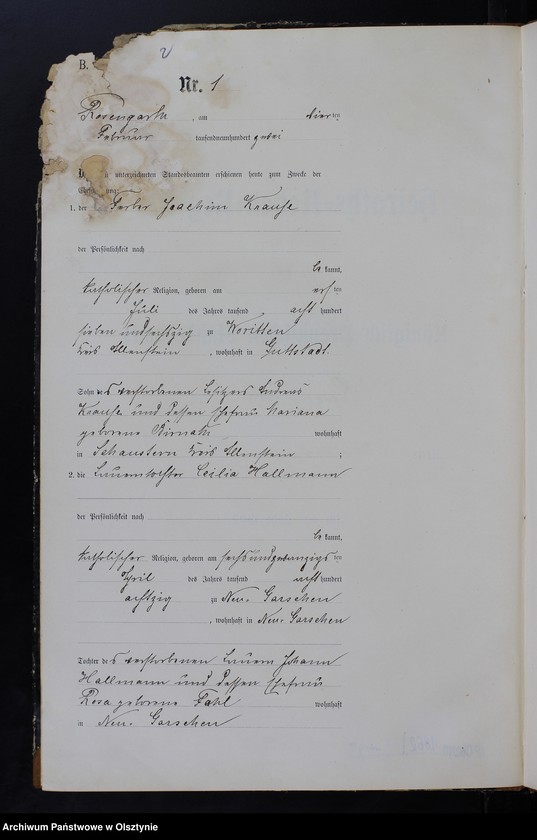 2
B.
Nr. 1
Rosengarth, am vierten
Februar tausendneunhundert zwei
unterzeichneten Standesbeamten erschienen heute zum Zwecke der
1. der Färber Joachim Krause
der Persönlichkeit nach
be kannt,
katholischer Religion, geboren am ersten
Juli des Jahres tausend acht hundert
sieben und sechszig zu Woritten
Kreis Allenstein, wohnhaft in Guttstadt.
Sohn des verstorbenen Besitzers Andreas
Krause und dessen Ehefrau Mariana
geborene wohnhaft
in Schaustern Kreis Allenstein ;
2. die Bauerntochter Cecilia Hallmann
der Persönlichkeit nach
be kannt,
katholischer Religion, geboren am sechsundzwanzigsten
April des Jahres tausend acht hundert
achtzig zu Neu-Garschen
, wohnhaft in Neu-Garschen
Tochter des verstorbenen Bauern Johann
Hallmann und dessen Ehefrau
Rosa geborene Fahl wohnhaft
in Neu-Garschen
Archiwum Państwowe w Olsztynie